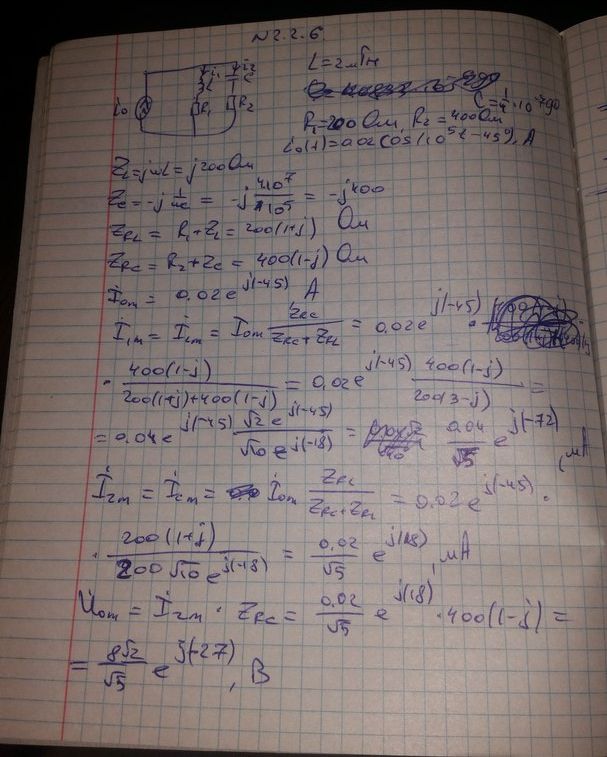 N 2.2.6
L = 2 мГн
C = 1/4 · 10^-7 Ф
i₀ R₁ L i₁ i₂ C R₂
R₁ = 200 Ом, R₂ = 400 Ом
i₀(t) = 0.02 cos(10^5 t - 45°), A
Z_L = jωL = j200 Ом
Z_C = -j 1/ωC = -j 4·10^7/10^5 = -j400
Z_RL = R₁ + Z_L = 200(1+j) Ом
Z_RC = R₂ + Z_C = 400(1-j) Ом
İ₀m = 0.02e^j(-45) A
İ₁m = İ_Lm = İ₀m Z_RC/(Z_RC + Z_RL) = 0.02e^j(-45) ·
· 400(1-j)/(200(1+j)+400(1-j)) = 0.02e^j(-45) 400(1-j)/200(3-j) =
= 0.04e^j(-45) √2 e^j(-45)/√10 e^j(-18) = 0.04/√5 e^j(-72), мА
İ₂m = İ_Cm = İ₀m Z_RL/(Z_RC + Z_RL) = 0.02e^j(-45) ·
· 200(1+j)/200√10 e^j(-18) = 0.02/√5 e^j(18), мА
U̇₀m = İ₂m · Z_RC = 0.02/√5 e^j(18) · 400(1-j) =
= 8√2/√5 e^j(-27), В